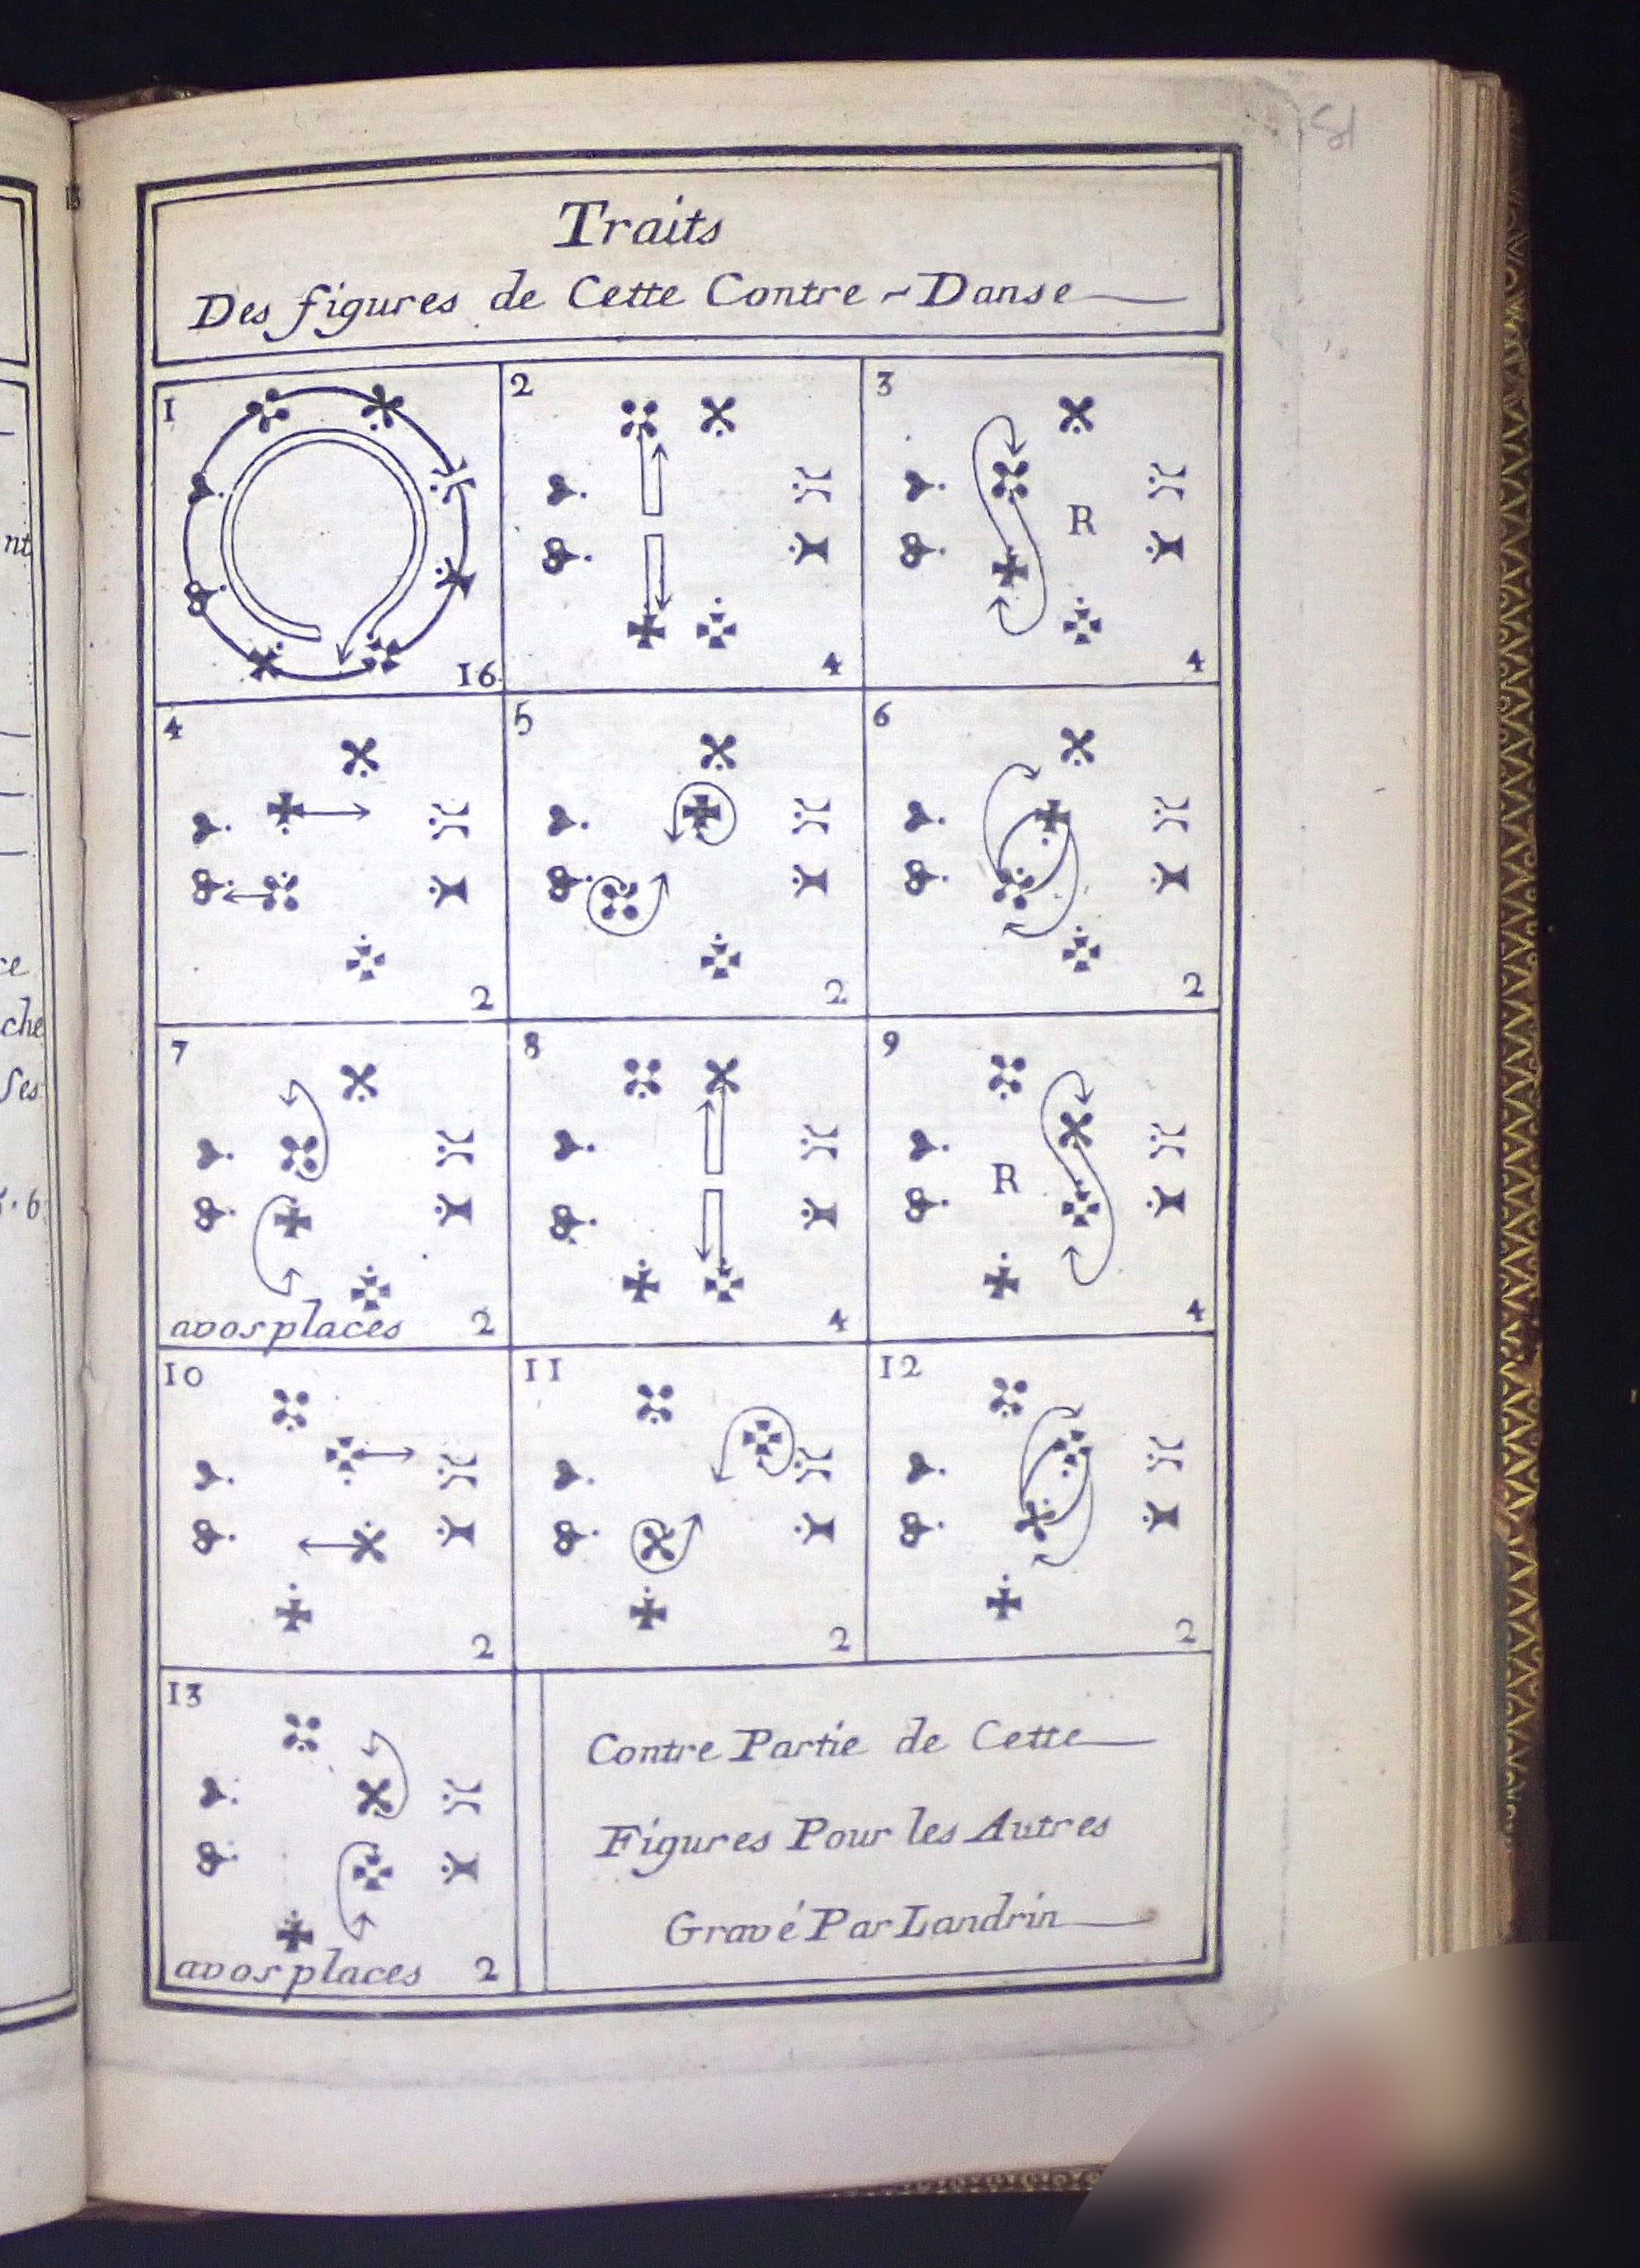 Traits
Des figures de Cette Contre-Danse
1
16
2
4
3
R
4
4
2
5
2
6
2
7
avos places 2
8
4
9
R
4
10
2
11
2
12
2
13
avos places 2
Contre Partie de Cette
Figures Pour les Autres
Gravé Par Landrin
nt
ce
che
ses
6